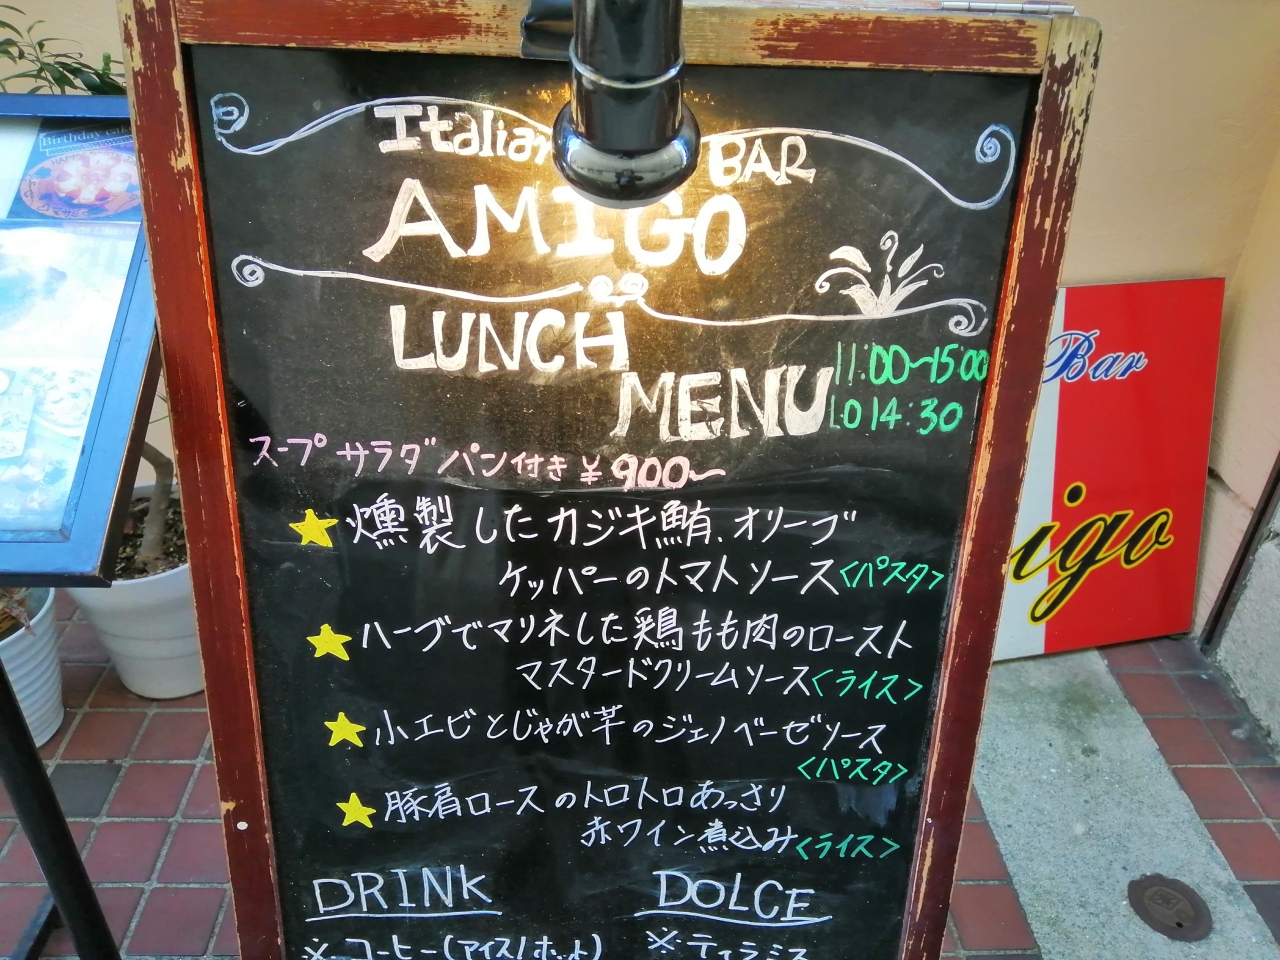 Italian BAR
AMIGO
LUNCH
MENU
11:00~15:00
L.O 14:30
スープ サラダ パン付き ¥900~
燻製したカジキ鮪、オリーブ
ケッパーのトマトソース<パスタ>
ハーブでマリネした鶏もも肉のロースト
マスタードクリームソース<ライス>
小エビとじゃが芋のジェノベーゼソース
<パスタ>
豚肩ロースのトロトロあっさり
赤ワイン煮込み<ライス>
DRINK
※コーヒー(アイス/ホット)
DOLCE
※ティラミス
Bar
igo
Birthday